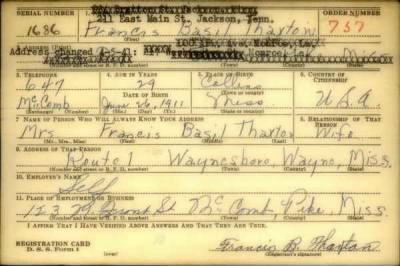 SERIAL NUMBER
211 East Main St. Jackson, Tenn.
ORDER NUMBER
1686
Francis Basil Thaxton
757
Address changed
Monroe, La.
Miss
3. TELEPHONE
4. AGE IN YEARS
5. PLACE OF BIRTH
6. COUNTRY OF CITIZENSHIP
647
29
Collins
McComb
DATE OF BIRTH
June 26, 1911
Miss
U.S.A
7. NAME OF PERSON WHO WILL ALWAYS KNOW YOUR ADDRESS
8. RELATIONSHIP OF THAT PERSON
Mrs Francis Basil Thaxton Wife
(Mr., Mrs., Miss) (First) (Middle) (Last)
9. ADDRESS OF THAT PERSON
Route 1 Waynesboro, Wayne, Miss.
(Number and street or R. F. D. number) (Town) (County) (State)
10. EMPLOYER'S NAME
Self
11. PLACE OF EMPLOYMENT OR BUSINESS
123 McComb, Pike, Miss.
(Number and street or R. F. D. number) (Town) (County) (State)
I AFFIRM THAT I HAVE VERIFIED ABOVE ANSWERS AND THAT THEY ARE TRUE.
REGISTRATION CARD
D. S. S. Form 1
Francis B. Thaxton
(Registrant's signature)